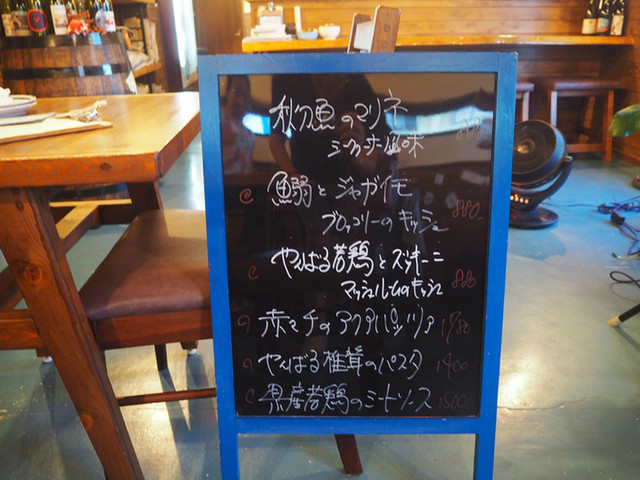 秋刀魚のマリネ
シークヮーサー風味
鰯とジャガイモ
ブロッコリーのキッシュ 880
やんばる若鶏とズッキーニ
マッシュルームのキッシュ 880
赤マチのアクアパッツァ 1780
やんばる椎茸のパスタ 1400
県産若鶏のミートソース